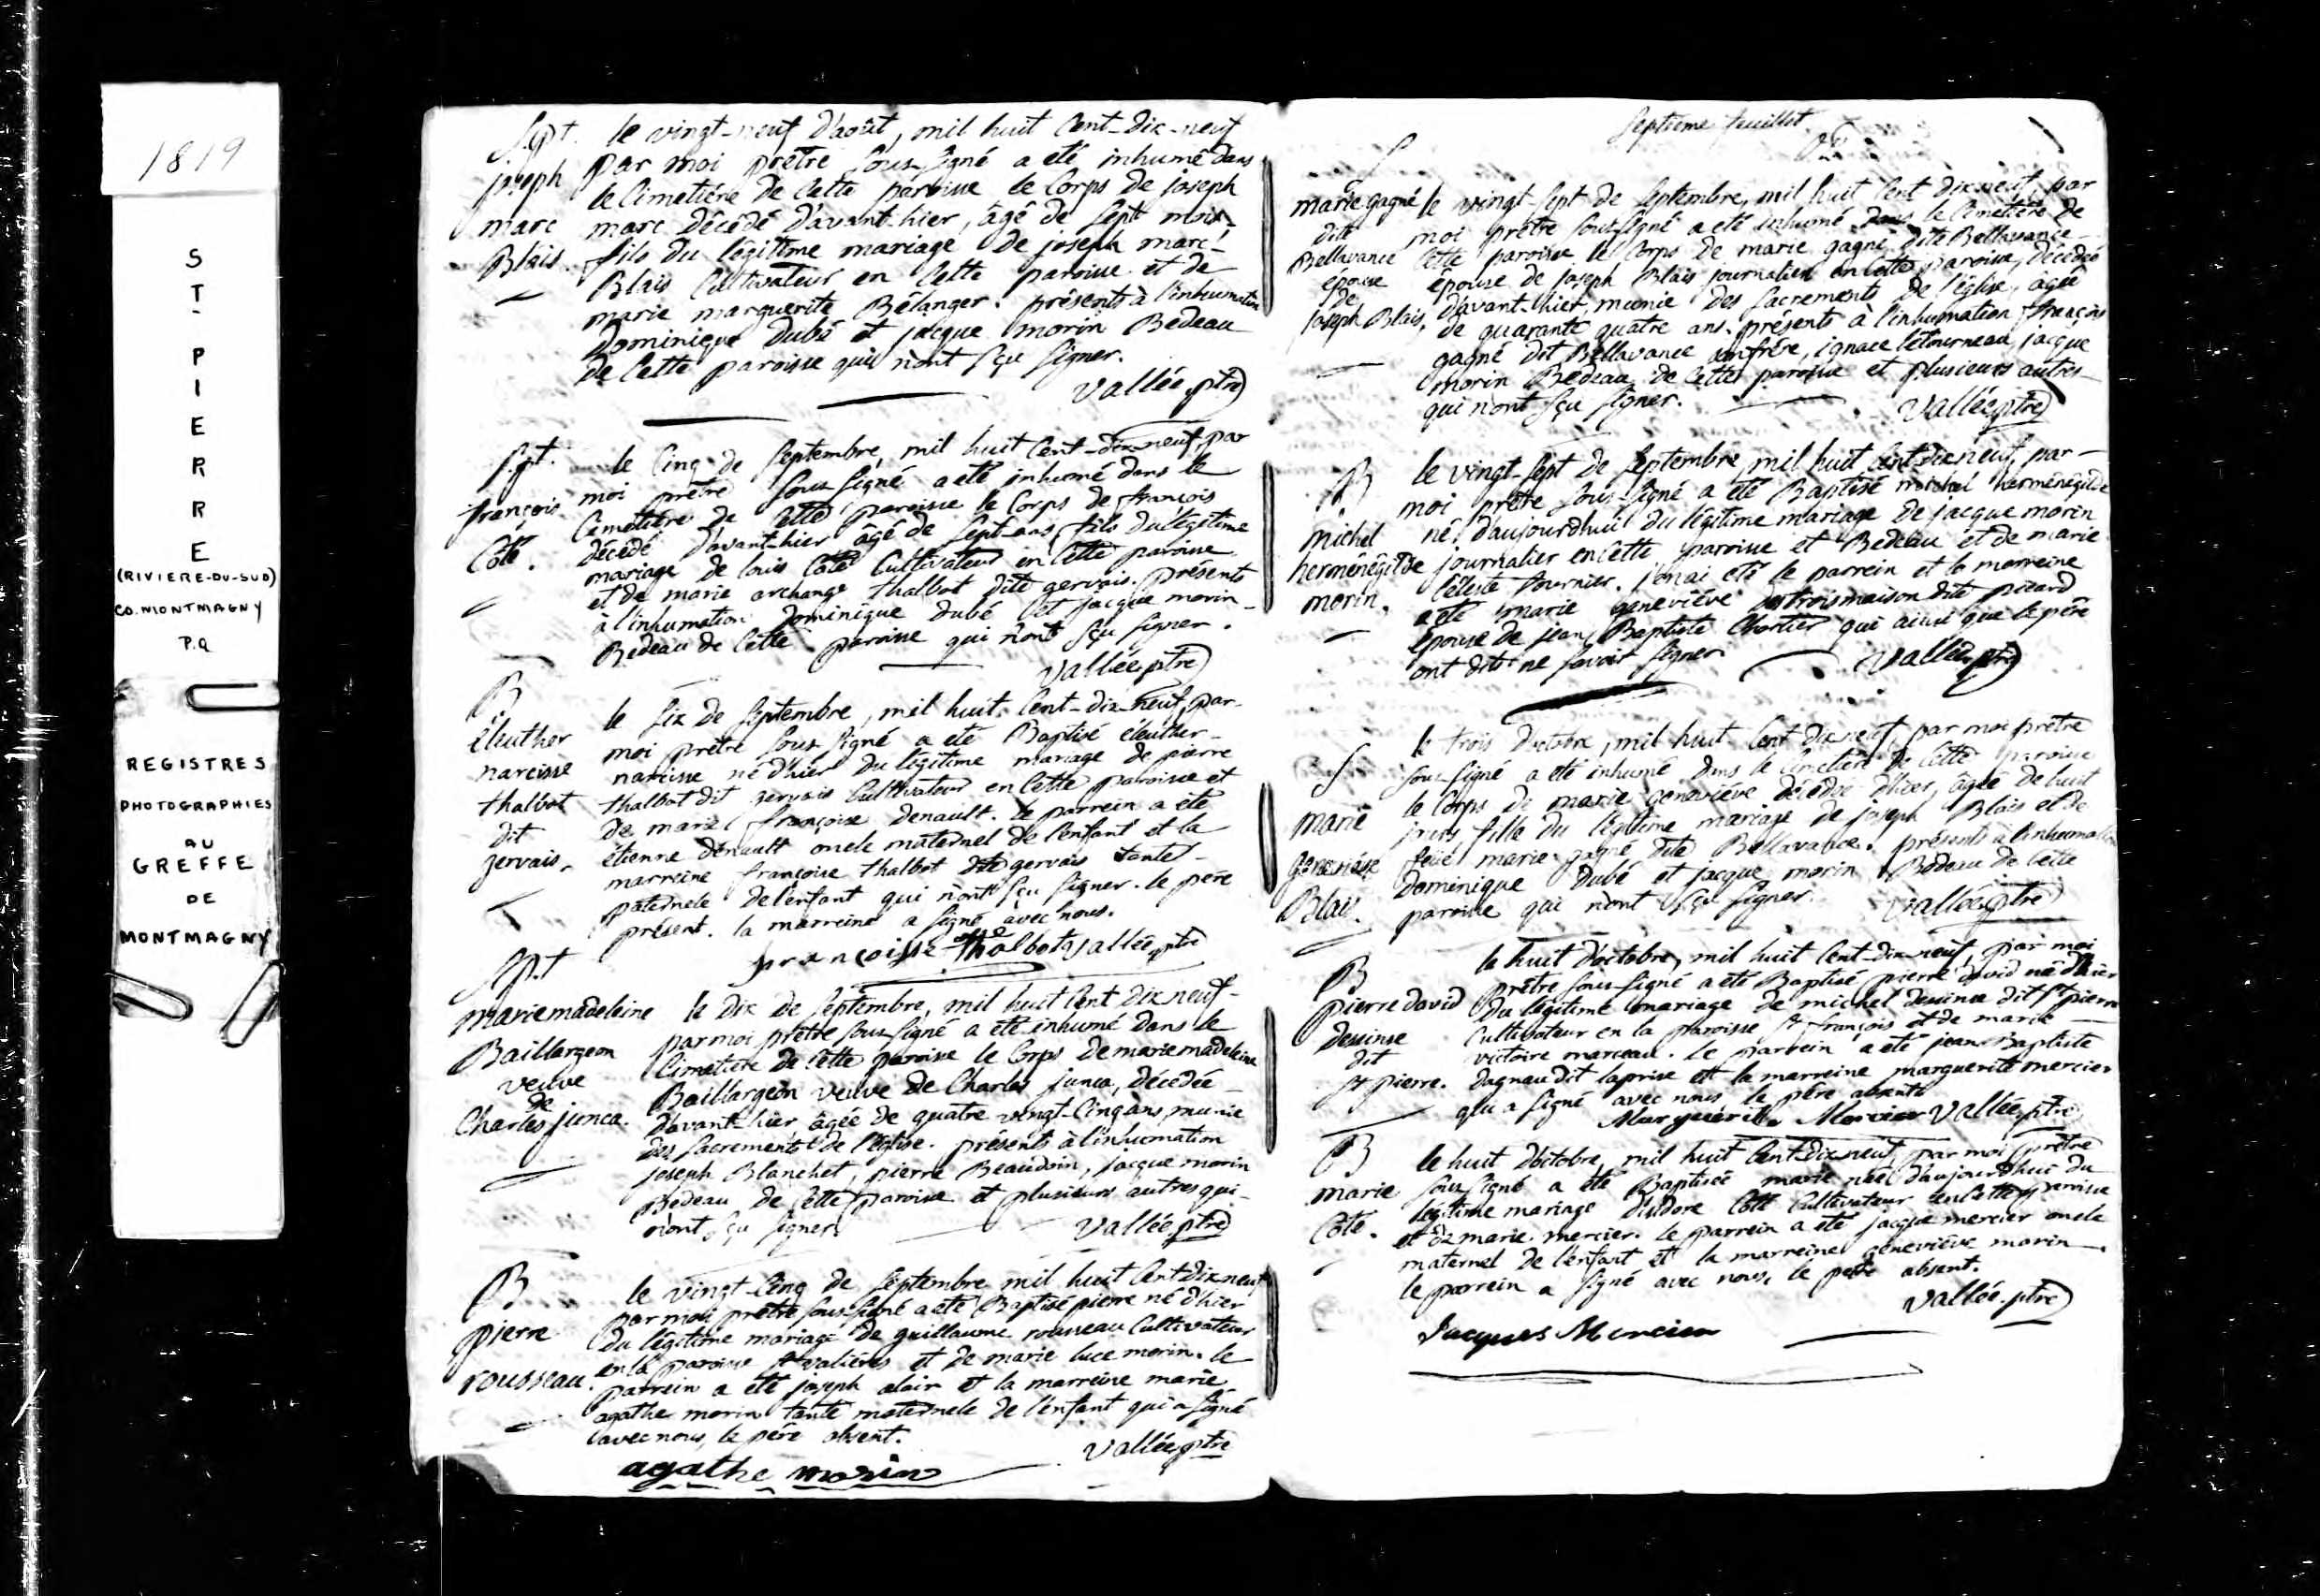 1819
ST-PIERRE
(RIVIERE-DU-SUD)
CO. MONTMAGNY
P.Q
REGISTRES
PHOTOGRAPHIES
AU
GREFFE
DE
MONTMAGNY
Spt.
joseph
marc
Blais.
le vingt-neuf d'août, mil huit Cent-dix-neuf
par moi prêtre sous-signé a eté inhumé dans
le Cimetière de Cette paroisse le Corps de joseph
marc décédé d'avant-hier, âgé de sept mois,
fils du légitime mariage de joseph marc
Blais Cultivateur en Cette paroisse et de
marie marguerite Bélanger. présents à l'inhumation
Dominique Dubé et jacque morin Bedeau
de Cette paroisse qui n'ont sçu signer.
Vallée, ptre
Spt.
françois
Côté.
le Cinq de Septembre, mil huit Cent-dix-neuf, par
moi prêtre sous-signé a eté inhumé dans le
Cimetière de Cette paroisse le Corps de françois
décédé d'avant-hier âgé de sept-ans, fils du légitime
mariage de louis Côté Cultivateur en Cette paroisse
et de marie archange thalbot dite gervais. présents
à l'inhumation Dominique Dubé et jacque morin
Bedeau de Cette paroisse qui n'ont sçu signer.
Vallée ptre
B
éleuther
narcisse
thalbot
dit
gervais.
le six de septembre, mil huit Cent-dix-neuf, par
moi prêtre sous-signé a eté Baptisé éleuther
narcisse né d'hier du légitime mariage de pierre
thalbot dit gervais Cultivateur en Cette paroisse et
de marie françoise Denault. le parrein a eté
étienne Denault oncle maternel de l'enfant et la
marreine françoise thalbot dite gervais tante
paternele de l'enfant qui n'ont sçu signer. le père
présent. la marreine a signé avec nous.
françoisse thalbot Vallée ptre
Sp.t
marie madeleine
Baillargeon
veuve
de
Charles junca.
le dix de septembre, mil huit Cent dix neuf
par moi prêtre sous-signé a eté inhumé dans le
Cimetière de Cette paroisse le Corps de marie madeleine
Baillargeon veuve de Charles junca, décédée
d'avant-hier âgée de quatre-vingt-Cinq ans, munie
des sacrements de l'église. présents à l'inhumation
joseph Blanchet, pierre Beaudoin, jacque morin
Bedeau de Cette paroisse et plusieurs autres qui
n'ont sçu signer.
Vallée ptre
B
pierre
rousseau.
le vingt-Cinq de septembre mil huit Cent dix neuf
par moi prêtre sous-signé a eté Baptisé pierre né d'hier
du légitime mariage de guillaume rousseau Cultivateur
en la paroisse st valière et de marie luce morin. le
parrein a eté joseph alair et la marreine marie
agathe morin tante maternele de l'enfant qui a signé
avec nous, le père absent.
Vallée ptre
agathe morin
septieme feuillet
S
marie gagné
dite
Bellavance
épouse
de
joseph Blais.
le vingt-sept de septembre, mil huit Cent dix neuf, par
moi prêtre sous-signé a eté inhumé dans le Cimetière de
Cette paroisse le Corps de marie gagné dite Bellavance
épouse de joseph Blais journalier en Cette paroisse, décédée
d'avant-hier, munie des sacrements de l'église, âgée
de quarante quatre ans. présents à l'inhumation françois
gagné dit Bellavance son frère, ignace létourneau, jacque
morin Bedeau de Cette paroisse et plusieurs autres
qui n'ont sçu signer.
Vallée ptre
B
michel
herménégilde
morin.
le vingt-sept de septembre, mil huit Cent dix neuf, par
moi prêtre sous-signé a eté Baptisé michel herménégilde
né d'aujourdhui du légitime mariage de jacque morin
journalier en Cette paroisse et Bedeau et de marie
Céleste fournier. j'en ai eté le parrein et la marreine
a eté marie geneviève destroismaison dite picard
épouse de jean Baptiste Chartier qui ainsi que le père
ont dit ne savoir signer
Vallée ptre
S
marie
geneviève
Blais.
le trois d'octobre, mil huit Cent dix neuf, par moi prêtre
sous-signé a eté inhumé dans le Cimetière de Cette paroisse
le Corps de marie geneviève décédée d'hier, âgée de huit
jours fille du légitime mariage de joseph Blais et de
feüe marie gagné dite Bellavance. présents à l'inhumation
Dominique Dubé et jacque morin Bedeau de Cette
paroisse qui n'ont sçu signer.
Vallée ptre
B
pierre david
dessinse
dit
st pierre.
le huit d'octobre, mil huit Cent-dix-neuf, par moi
prêtre sous-signé a eté Baptisé pierre david né d'hier
du légitime mariage de michel dessinse dit st pierre
Cultivateur en la paroisse st françois et de marie
victoire marceau. le parrein a eté jean Baptiste
dagneau dit laprise et la marreine marguerite mercier
qui a signé avec nous, le père absent.
Margueritte Mercier Vallée ptre
B
marie
Côté.
le huit d'octobre, mil huit Cent-dix-neuf, par moi prêtre
sous-signé a été Baptisée marie née d'aujourd'hui du
légitime mariage d'isidore Côté Cultivateur en Cette paroisse
et de marie mercier. le parrein a eté jacque mercier oncle
maternel de l'enfant et la marreine geneviève morin.
le parrein a signé avec nous, le père absent.
Vallée ptre
Jacques Mercier